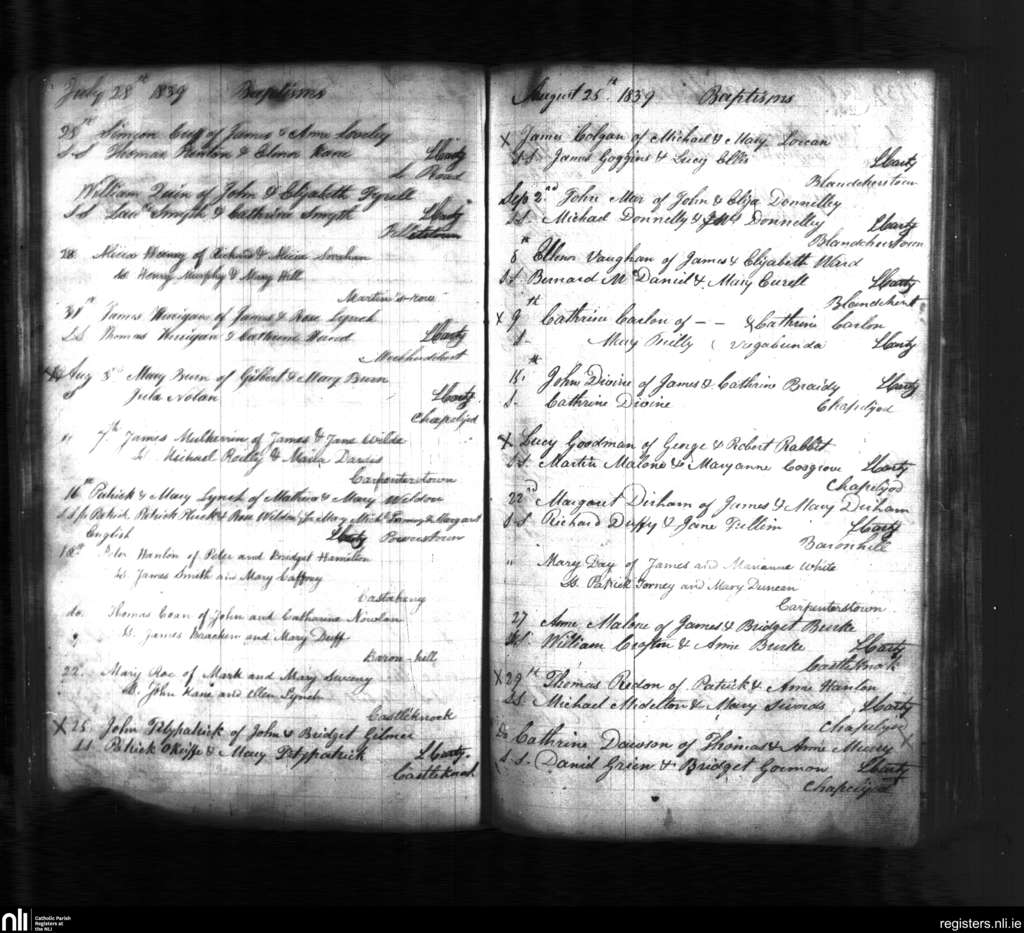 July 28th 1839 Baptisms
28th Simeon of James & Anne
S S Thomas & Elenor Kane LCarty
L Road
William Quin of John & Elizabeth Tyrell
S S Lau Smyth & Catherine Smyth LCarty
28 of Richard &
ss Henry Murphy & Mary Hill
Martin's row
31st James Kerrigan of James & Rose Lynch
S S Thomas Kerrigan & Catherine LCarty
Aug 3d Mary Burn of Gilbert & Mary Burn
Jula Nolan LCarty
Chapelizod
7th James of James & Jane Wilde
Michael Reilly & Maria Davis
Carpenterstown
16th Patrick & Mary Lynch of Mathew & Mary Weldon
S S Patrick & Rose Weldon for Mary Mich & Margaret
English LCarty Powerstown
18th Peter Hanlon of Peter and Bridget Hamilton
Ss. James Smith and Mary Caffrey
do. Thomas Coan of John and Catharine Nowlan
Ss. James and Mary Duff
Baron-hill
22 Mary Roe of Mark and Mary Sweeny
Ss. John Kane and Ellen Lynch
Castleknock
X 25 John Fitzpatrick of John & Bridget Gilmer
S S Patrick OKeiffe & Mary Fitzpatrick LCarty
Castleknock
August 25th 1839 Baptisms
X James Colgan of Michael & Mary Lorcan
S S James Goggins & Lucy Ellis LCarty
Blancherstown
Sep 2nd John Mar of John & Eliza Donnelley
S S Michael Donnelly & Donnelley LCarty
Blanchestown
8th Ellenor Vaughan of James & Elizabeth Ward
S S Bernard McDaniel & Mary Curell LCarty
X 9th Cathrine Carlon of – – & Cathrine Carlon
S- Mary Reilly Vagabunda LCarty
15th John Divine of James & Cathrine Braidy LCarty
S- Cathrine Divine Chapelizod
X Lucy Goodman of George & Robert Rabbit
S S Martin Malone & Maryanne Cosgrove LCarty
Chapelizod
22nd Margaret Dirham of James & Mary Dirham
S S Richard Duffy & Jane Fullim LCarty
Baronhill
" Mary Day of James and Marianne White
Ss Patrick Torney and Mary Duncan
Carpenterstown
27 Anne Malone of James & Bridget Burke
S S William Crofton & Anne Burke LCarty
Castleknock
X 29th Thomas Redon of Patrick & Anne Hanlon
S S Michael Midelton & Mary Swords LCarty
Chapelizod
Do Cathrine Dawson of Thomas & Anne X
S S Daniel Green & Bridget Gormon LCarty
Chapelizod
nli Catholic Parish
Registers at
the NLI
registers.nli.ie